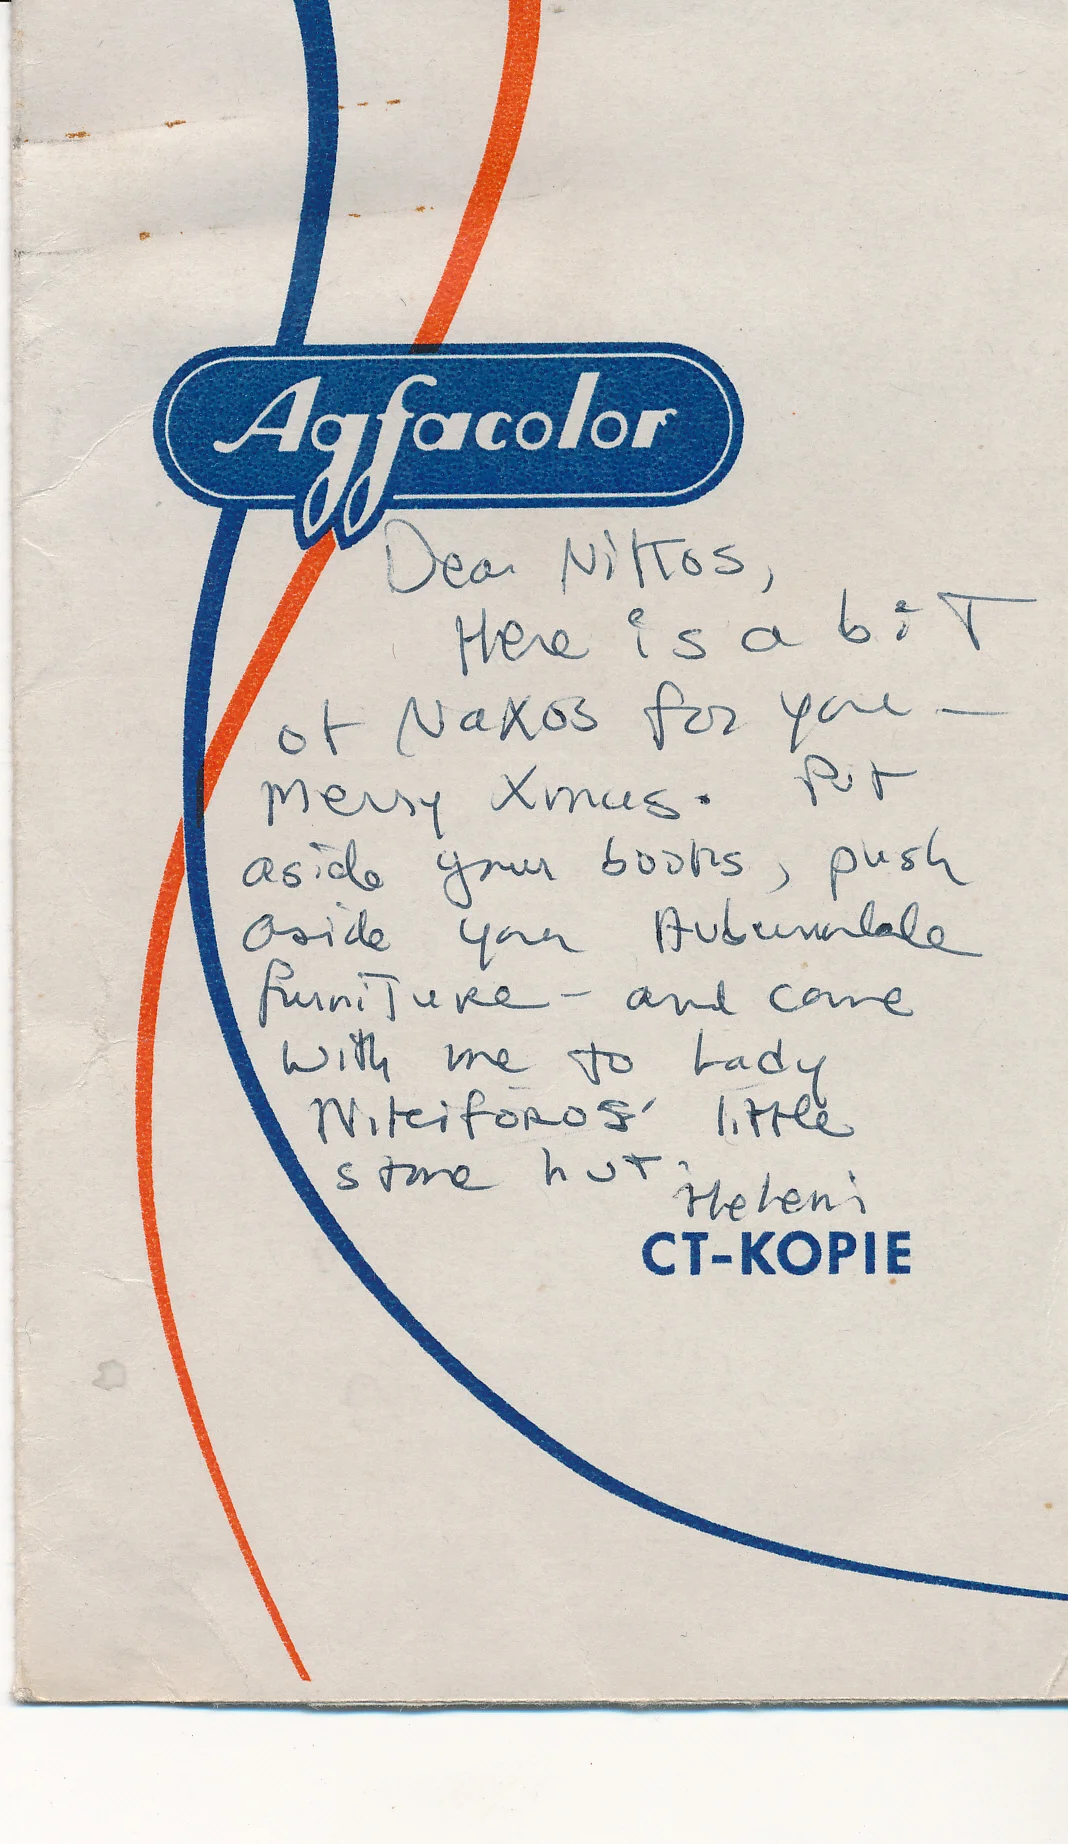 Agfacolor
Dear Nikos,
Here is a bit
of Naxos for you —
Merry Xmas. Put
aside your books, push
aside your Auburndale
furniture - and come
with me to Lady
Nikiforos' little
stone hut.
Heleni
CT-KOPIE